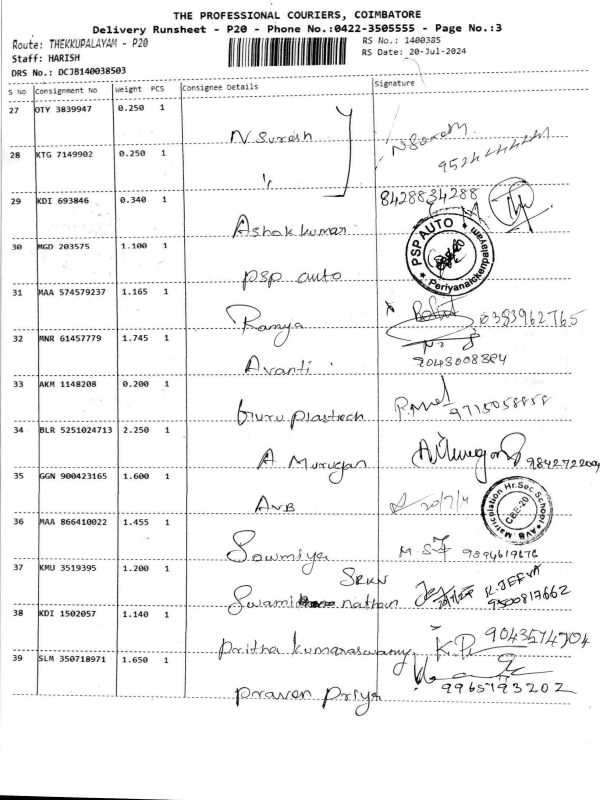 THE PROFESSIONAL COURIERS, COIMBATORE
Delivery Runsheet - P20 - Phone No.:0422-3505555 - Page No.:3
Route: THEKKUPALAYAM - P20
RS No.: 1400385
Staff: HARISH
RS Date: 20-Jul-2024
DRS No.: DCJB140038503
S No Consignment No Weight PCS Consignee Details Signature
27 OTY 3839947 0.250 1
N Suresh
28 KTG 7149902 0.250 1
29 KDI 693846 0.340 1 8428834288
Ashok kumar
30 MGD 203575 1.100 1
PSP AUTO
Periyanaickenpalayam
psp auto
31 MAA 574579237 1.165 1
Ramya
32 MNR 61457779 1.745 1
Avanti
33 AKM 1148208 0.200 1
Guru plastech
34 BLR 5251024713 2.250 1
A Murugan
35 GGN 900423165 1.600 1
AVB
Matriculation Hr.Sec School
CBE-20
AVB
36 MAA 866410022 1.455 1
Sowmiya
37 KMU 3519395 1.200 1
SRKV
Swami nathan
K. JEEVA
9500817662
38 KDI 1502057 1.140 1
Pritha kumaraswamy
39 SLM 350718971 1.650 1
Praven Priya
9965793202